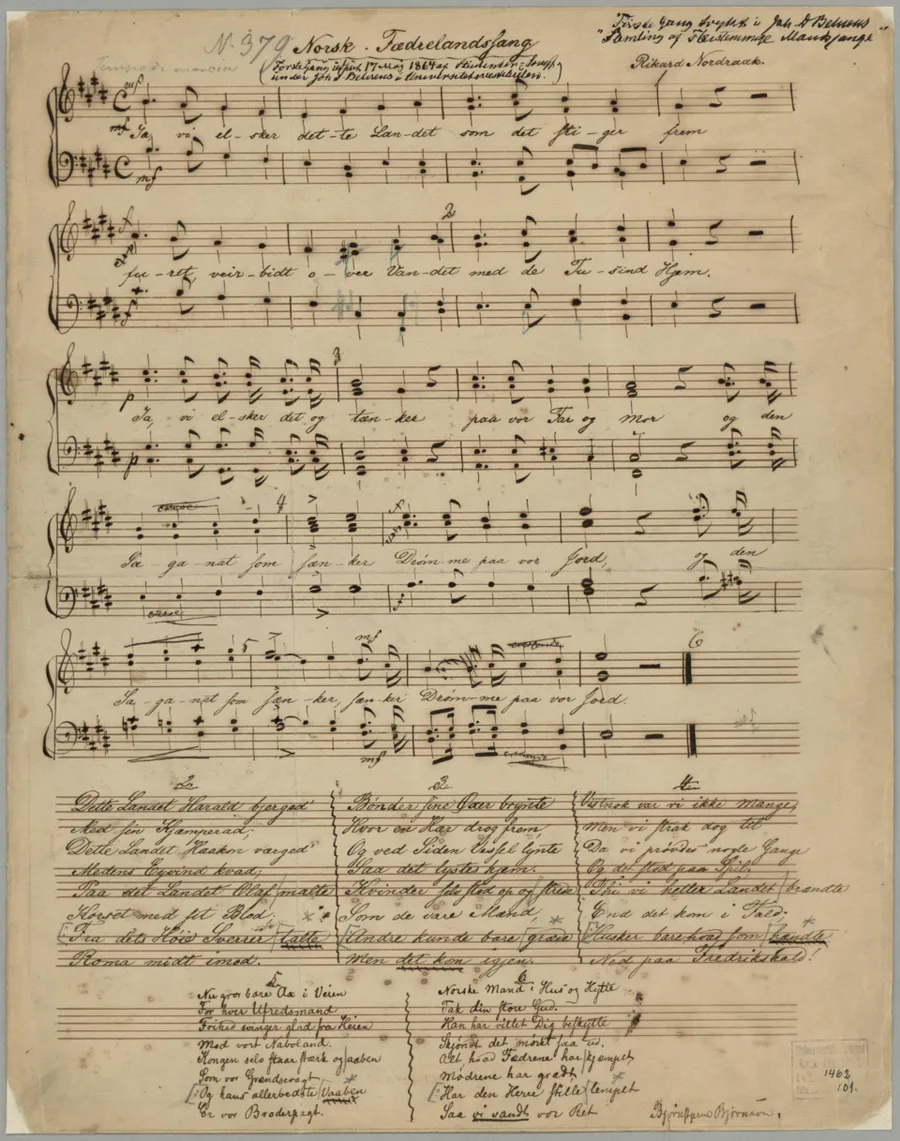 Første Gang trykt i Joh. D. Behrens
"Samling af Flerstemmige Mandssange"
N. 379 Norsk Fædrelandssang
Tempo di marcia
(Første Gang 17 Mai 1864 af Studenter
under Joh. D. Behrens i Universitets
Rikard Nordraak.
mf
mf Ja, vi el-sker det-te Lan-det som det sti-ger frem
mf
f 2
fu-ret, veir-bidt o-ver Van-det med de Tu-sind Hjem.
f
3
p Ja, vi el-sker det og tæn-ker paa vor Far og Mor og den
p
cresc 4
Sa-ga-nat som sæn-ker Drøm-me paa vor Jord, og den
cresc
5 mf 6
Sa-ga-nat som sæn-ker, sæn-ker Drøm-me paa vor Jord.
mf
2
Dette Landet Harald bjerged'
Med sin Kjæmperad,
Dette Landet Haakon værged'
Medens Eyvind kvad;
Paa det Landet Olaf malte
Korset med sit Blod,
Fra dets Høie Sverrer talte
Roma midt imod.
3
Bønder sine Øxer brynte
Hvor en Hær drog frem,
Og ved Siden lynte
Saa det lystes hjem.
Kvinder selv stod op og strede
Som de vare Mænd,
Andre kunde bare græde
Men det kom igjen.
4
Vistnok var vi ikke mange,
Men vi strak dog til
Da vi prøvdes nogle Gange
Og det stod paa Spil,
Thi vi heller Landet brændte
End det kom i Fald;
Husker bare hvad som hændte
Ned paa Fredrikshald!
5
Nu groer bare Ax i Veien
For hver Ufredsmand
Fra Heien
Mod vort Naboland.
Kongen selv staar stærk og aaben
Som vor Grændsevagt
Og hans allerbedste Vaaben
Er vor Broderpagt.
6
Norske Mand i Hus og Hytte
Tak din store Gud.
Han har villet Dig beskytte
Skjøndt det mørkt saa ud.
Alt hvad Fædrene har kjæmpet
Mødrene har grædt,
Har den Herre stille lempet
Saa vi vandt vor Ret
Bjørnstjerne Bjørnson.
1462
101.